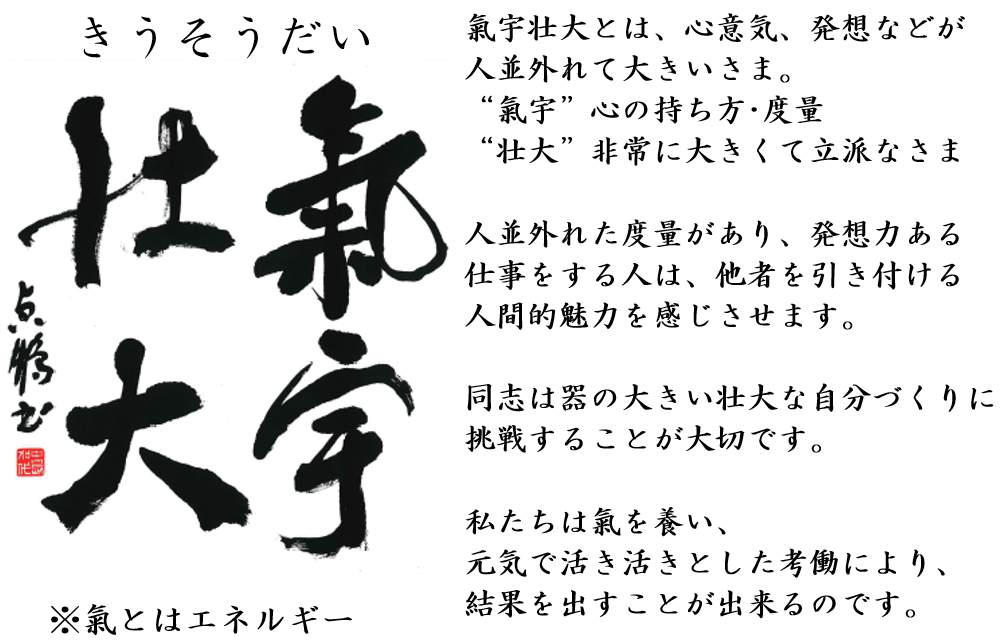 きうそうだい
氣宇
壮大
点鵬書
※氣とはエネルギー
氣宇壮大とは、心意気、発想などが
人並外れて大きいさま。
“氣宇”心の持ち方･度量
“壮大”非常に大きくて立派なさま
人並外れた度量があり、発想力ある
仕事をする人は、他者を引き付ける
人間的魅力を感じさせます。
同志は器の大きい壮大な自分づくりに
挑戦することが大切です。
私たちは氣を養い、
元気で活き活きとした考働により、
結果を出すことが出来るのです。